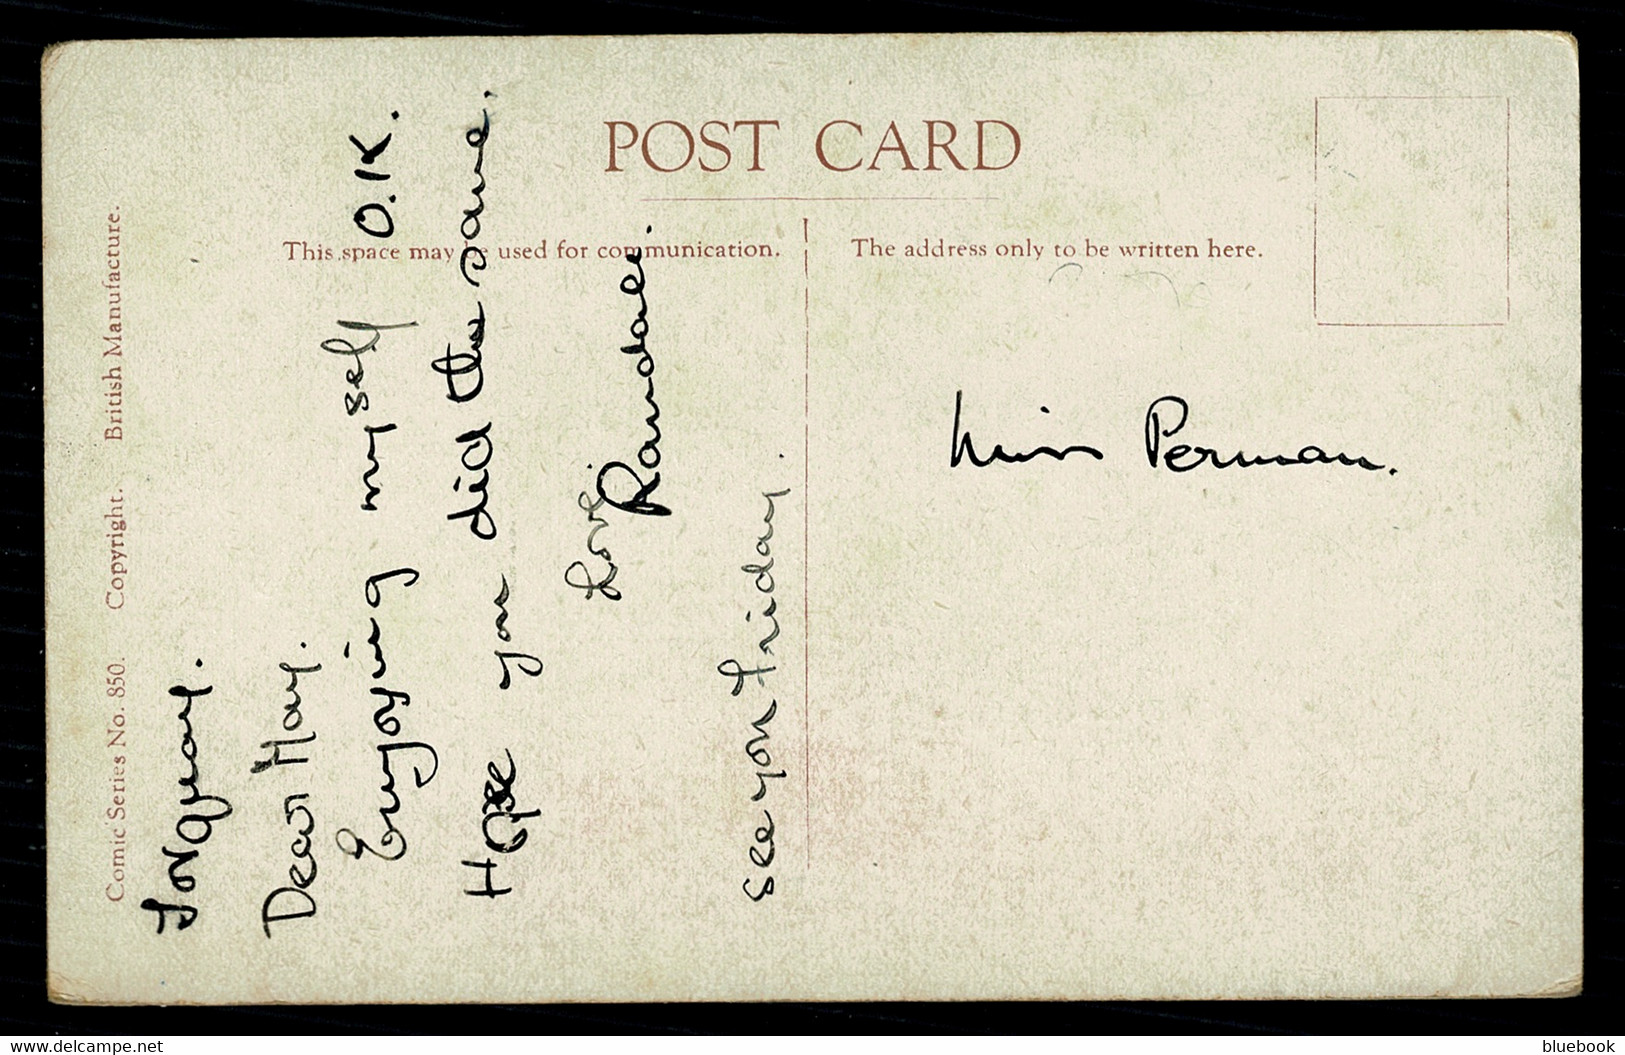 POST CARD
This space may be used for communication.
The address only to be written here.
Comic Series No. 850. Copyright. British Manufacture.
Torquay.
Dear May.
Enjoying myself O.K.
Hope you did the same.
Love.
Randall.
See you Friday.
Miss Perman.
www.delcampe.net
bluebook